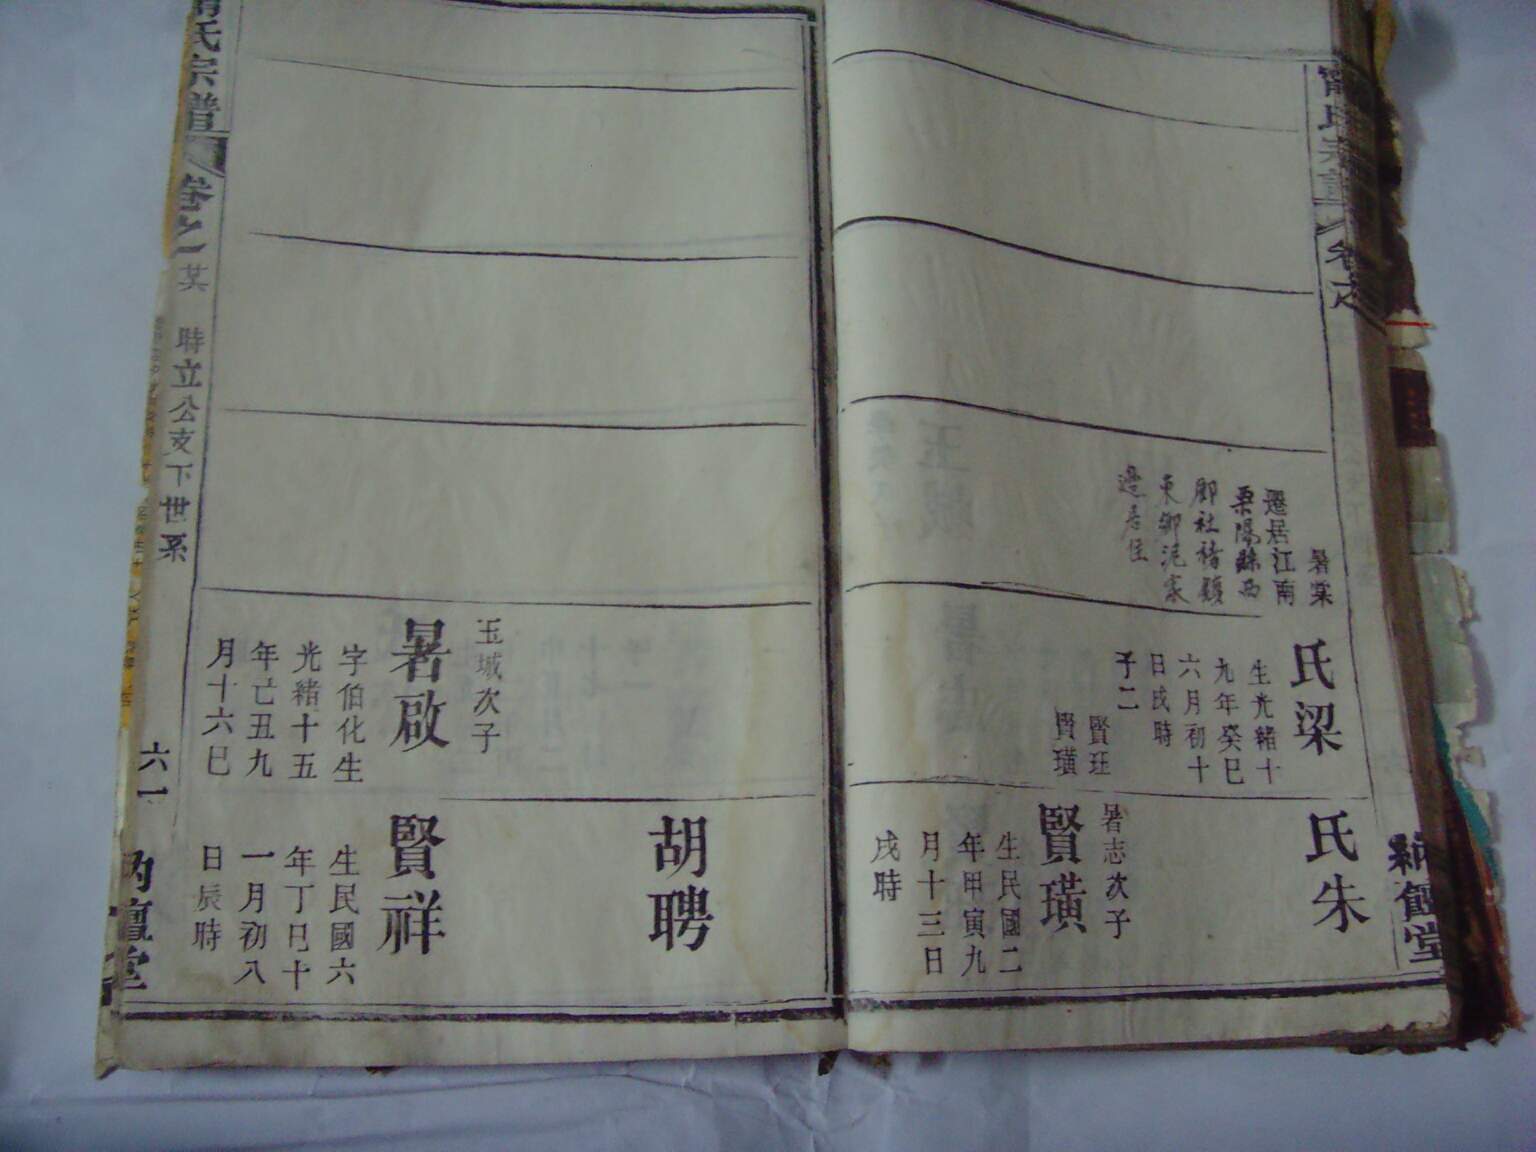 卷之
暑棠
遷居江南
栗陽縣西
社猪顏
東鄉泥家
邊居住
氏梁
生光緒十
九年癸巳
六月初十
日戌時
子二
賢玨
賢璜
氏朱
暑志次子
賢璜
生民國二
年甲寅九
月十三日
戌時
胡聘
玉城次子
暑啟
字伯化生
光緒十五
年亡丑九
月十六巳
賢祥
生民國六
年丁巳十
一月初八
日辰時
氏宗譜
卷之
某
時立公支下世系
六一
堂